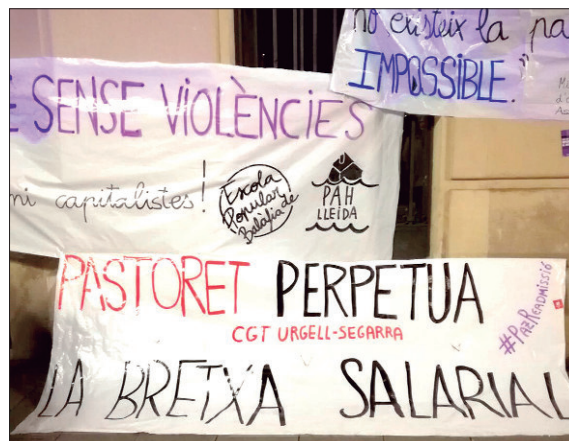 no existeix la pa
IMPOSSIBLE."
SENSE VIOLÈNCIES
ni capitalistes!
Escola
Popular de
Balàfia
PAH
LLEIDA
PASTORET PERPETUA
CGT URGELL-SEGARRA
#PazReadmissió
LA BRETXA SALARIAL